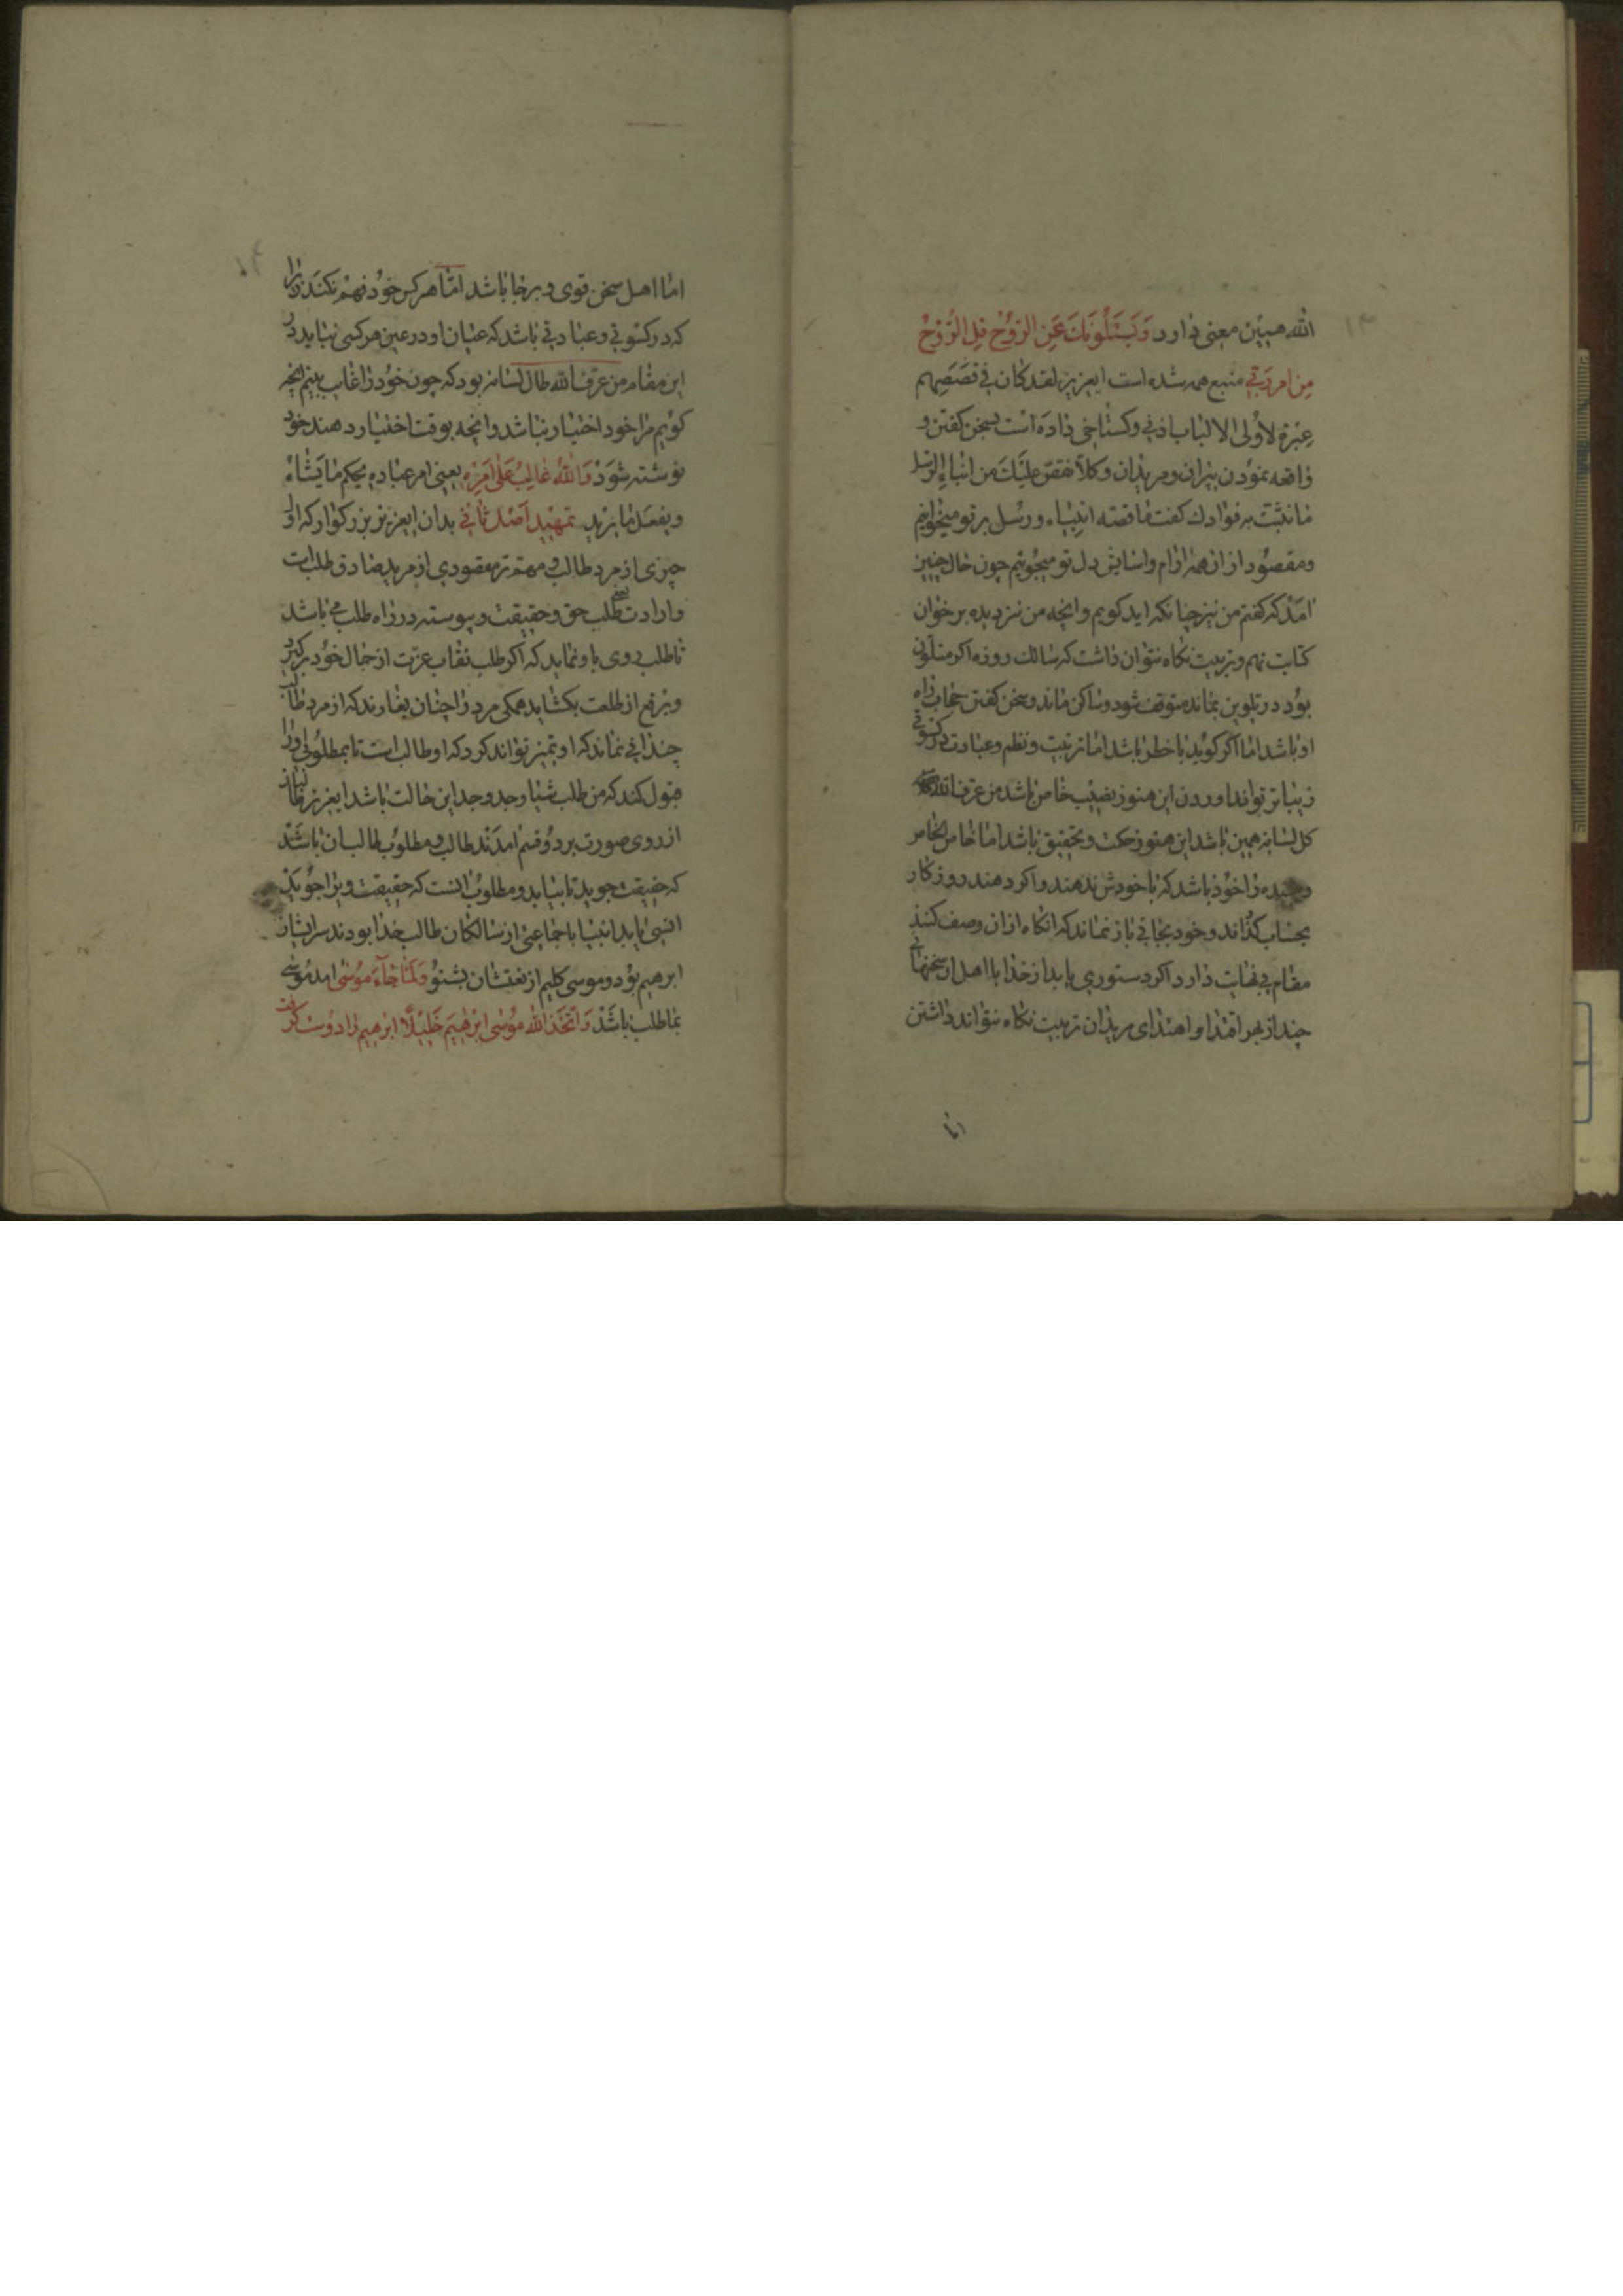 ۱۳
الله همین معنی دارد وَیَسْئَلُونَكَ عَنِ الرُّوْحِ قُلِ الرُّوْحُ
مِن امر رَبّی منبع همه شده است ایعزیز لقد کان فی قصَصِهِم
عِبْرَة لاُولی الالباب اذنی وکستاخی داده است بسخن کفتن و
واقعه نمودن پیران و مریدان وکلاً نقصّ علیَكَ من انباءِ الرّسل
ما نثبّت به فوادك کفت ما قصّه انبیاء ورُسل بر تو میخوانیم
ومقصُود از ان همه ارام واسایش دل تو میجُوییم چون حال چنین
امَد که کفتم من نیز چنانکه اید کویم وانچه من نزد یده برخوان
کتابت نهم وتربیت نکاه نتوان داشت که سالك رونده اکر متلوّن
بوُد در تلوین بماند متوقف شود وساکن ماند وسخن کفتن حجاب راه
او باشد اما اکر کوید با خطر باشد اما ترتیب ونظم وعبادت در کسوتی
زیباتر تواند اوردن این هنوز نصیب خاص باشد من عرف الله
کل لسانه همین باشد این هنوز حکمت وتحقیق باشد اما خاص الخاص
را خوُد باشد که با خودش ندهند واکر دهند روزکار
بحساب کذاند وخود بجائی باز نماند که انکاه ازان وصف کنند
مقام بی نهایت دارد اکر دستوری یابد از خدا یا اهل از سخنهائی
چند از بهر اقتدا واهتدای مریدان تربیت نکاه نتواند داشتن
اما
۱۴
اما اهل سخن قوی وبرجا باشد امّا هر کس خوُد فهم نکند زیرا
که در کسوتی وعباوتی باشد که عیان او در عین هر کسی نیاید در
این مقام من عرف الله طال لسانه بود که چون خوُد را غایب بینم انچه
کویم مرا خود اختیار نباشد وانچه بوقت اختیار دهند خوُد
نوشته شوَد وَاللهُ غالِبٌ عَلی اَمْرِهِ یعنی امر عباده یحکم ما یَشاءُ
ویفعل ما یرید تمهید اَصْل ثانی بدان ایعزیز بزرکوار که اوّل
چیزی از مرد طالب ومهمّ تر مقصودی از مرید صادق طلبست
وارادت یعنی طلب حق وحقیقت وپیوسته در راه طلب می باشد
تا طلب روی باو نماید که اکر طلب نقاب عزّت از جمال خوُد برکیرد
وبرقع از طلعت بکشاید همکی مرد را چنان بغارند که از مرد طالب
چندانی نماند که او تمیز تواند کرد که او طالبست تا بمطلوُبی او را
قبول کند که من طلب شیأ وجد وجد این حالت باشد ایعزیز طالبان
از روی صورت بر دوُ قسم امدَند طالب ومطلوُب طالب ان باشَد
که حقیقت جوید تا بیابد ومطلوُب انست که حقیقت ویرا جوُید تا
انسی یابد انبیا با جماعتی از سالکان طالب خدا بودند سر ایشان
ابرهیم بوُد وموسی کلیم از نعتشان بشنوُ وَلَمّا جاءَ موُسی امد موُسی
بما طلب باشَد وَاتَّخَذَ اللهُ موُسی اِبْرٰهِیَم خَلِیْلاً ابرهیم را دوُست کرفت